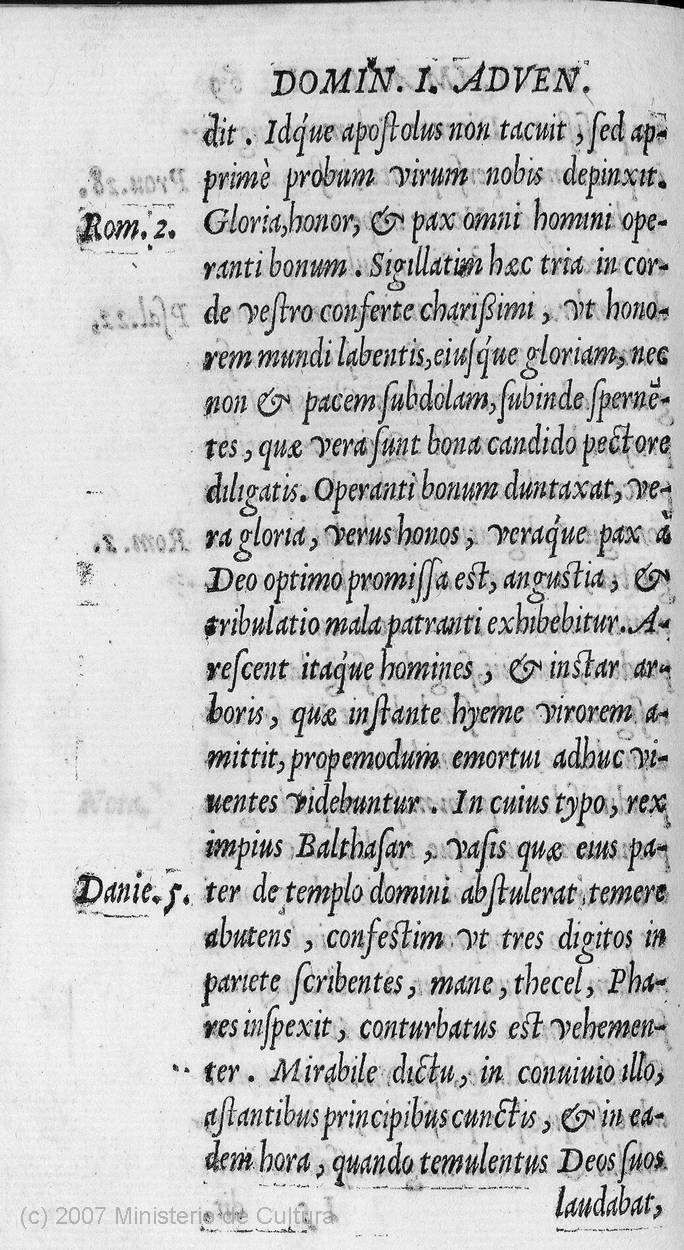 DOMIN. I. ADVEN.
dit. Idq́ue apostolus non tacuit, sed ap-
primè probum virum nobis depinxit.
Rom. 2. Gloria, honor, & pax omni homini ope-
ranti bonum. Sigillatim hæc tria in cor-
de vestro conferte charißimi, vt hono-
rem mundi labentis, eiusq́ue gloriam, nec
non & pacem subdolam, subinde sperne͂-
tes, quæ vera sunt bona candido pectore
diligatis. Operanti bonum duntaxat, ve-
ra gloria, verus honos, veraq́ue pax à
Deo optimo promissa est, angustia, &
tribulatio mala patranti exhibebitur. A-
rescent itaq́ue homines, & instar ar-
boris, quæ instante hyeme virorem a-
mittit, propemodum emortui adhuc vi-
uentes videbuntur. In cuius typo, rex
impius Balthasar, vasis quæ eius pa-
Danie. 5. ter de templo domini abstulerat temere
abutens, confestim vt tres digitos in
pariete scribentes, mane, thecel, Pha-
res inspexit, conturbatus est vehemen-
ter. Mirabile dictu, in conuiuio illo,
astantibus principibus cunctis, & in ea-
dem hora, quando temulentus Deos suos
laudabat,
(c) 2007 Ministerio de Cultura